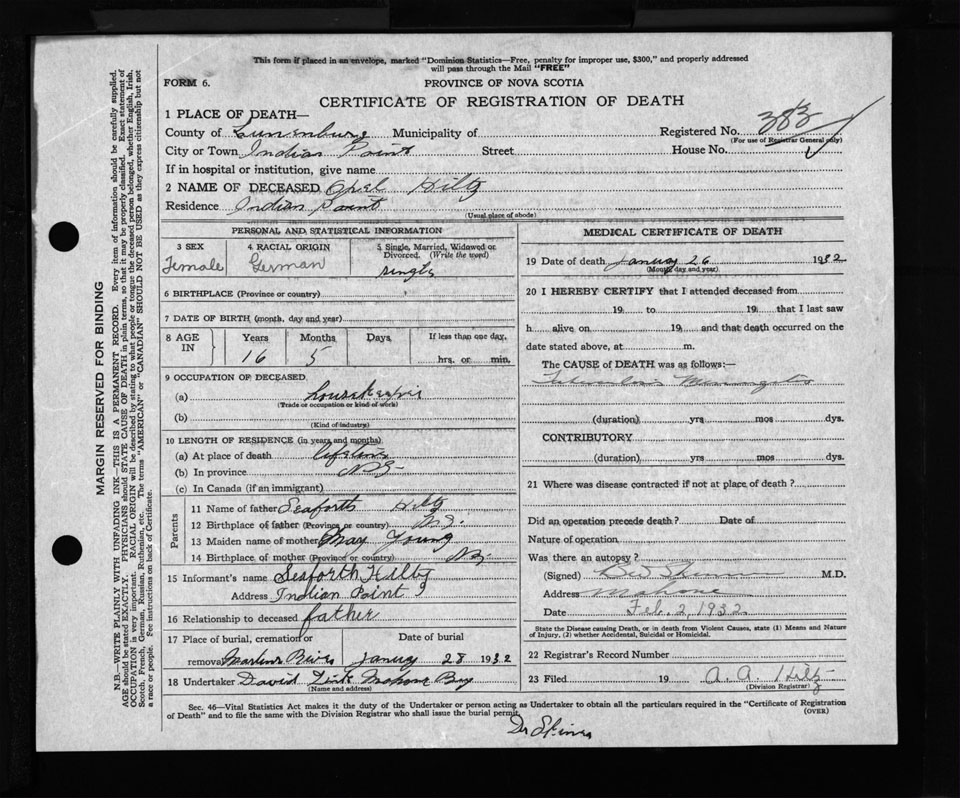 This form if placed in an envelope, marked "Dominion Statistics—Free, penalty for improper use, $300," and properly addressed
will pass through the Mail "FREE"
FORM 6. PROVINCE OF NOVA SCOTIA
CERTIFICATE OF REGISTRATION OF DEATH
1 PLACE OF DEATH—
County of Lunenburg Municipality of Registered No. 383
(For use of Registrar General only)
City or Town Indian Point Street House No.
If in hospital or institution, give name
2 NAME OF DECEASED Opel Hiltz
Residence Indian Point
(Usual place of abode)
PERSONAL AND STATISTICAL INFORMATION
3 SEX 4 RACIAL ORIGIN 5 Single, Married, Widowed or Divorced. (Write the word)
Female German single
6 BIRTHPLACE (Province or country)
7 DATE OF BIRTH (month, day and year)
8 AGE IN Years Months Days If less than one day,
16 5 hrs. or min.
9 OCCUPATION OF DECEASED
(a)
(Trade or occupation or kind of work)
(b)
(Kind of industry)
10 LENGTH OF RESIDENCE (in years and months)
(a) At place of death lifetime
(b) In province N.S.
(c) In Canada (if an immigrant)
Parents
11 Name of father Seaforth Hiltz
12 Birthplace of father (Province or country) N.S.
13 Maiden name of mother May Young
14 Birthplace of mother (Province or country) N.S.
15 Informant's name Seaforth Hiltz
Address Indian Point
16 Relationship to deceased father
17 Place of burial, cremation or Date of burial
removal Martins River January 28 1932
18 Undertaker David Mahone Bay
(Name and address)
MEDICAL CERTIFICATE OF DEATH
19 Date of death January 26 1932
(Month, day and year)
20 I HEREBY CERTIFY that I attended deceased from
19 to 19 that I last saw
h alive on 19 and that death occurred on
date stated above, at m.
The CAUSE OF DEATH was as follows:—
Tuberculosis Meningitis
(duration) yrs mos dys.
CONTRIBUTORY
(duration) yrs. mos. dys.
21 Where was disease contracted if not at place of death?
Did an operation precede death? Date of
Nature of operation
Was there an autopsy?
(Signed) M.D.
Address Mahone
Date Feb. 2, 1932
State the Disease causing Death, or in death from Violent Causes, state (1) Means and Nature
of Injury, (2) whether Accidental, Suicidal or Homicidal.
22 Registrar's Record Number
23 Filed 19 A. A. Hiltz
(Division Registrar)
Sec. 46—Vital Statistics Act makes it the duty of the Undertaker or person acting as Undertaker to obtain all the particulars required in the "Certificate of Registration
of Death" and to file the same with the Division Registrar who shall issue the burial permit. (OVER)
MARGIN RESERVED FOR BINDING
N.B.—WRITE PLAINLY WITH UNFADING INK—THIS IS A PERMANENT RECORD. Every item of information should be carefully supplied.
AGE should be stated EXACTLY. PHYSICIANS should STATE CAUSE OF DEATH in plain terms, so that it may be properly classified. Exact statement of
OCCUPATION is very important. RACIAL ORIGIN will be described by stating to what people or tongue the deceased person belonged, whether English, Irish,
Scotch, French, German, Russian, Ruthenian, etc. The terms "AMERICAN" or "CANADIAN" SHOULD NOT BE USED as they express citizenship but not
a race or people. See instructions on back of Certificate.